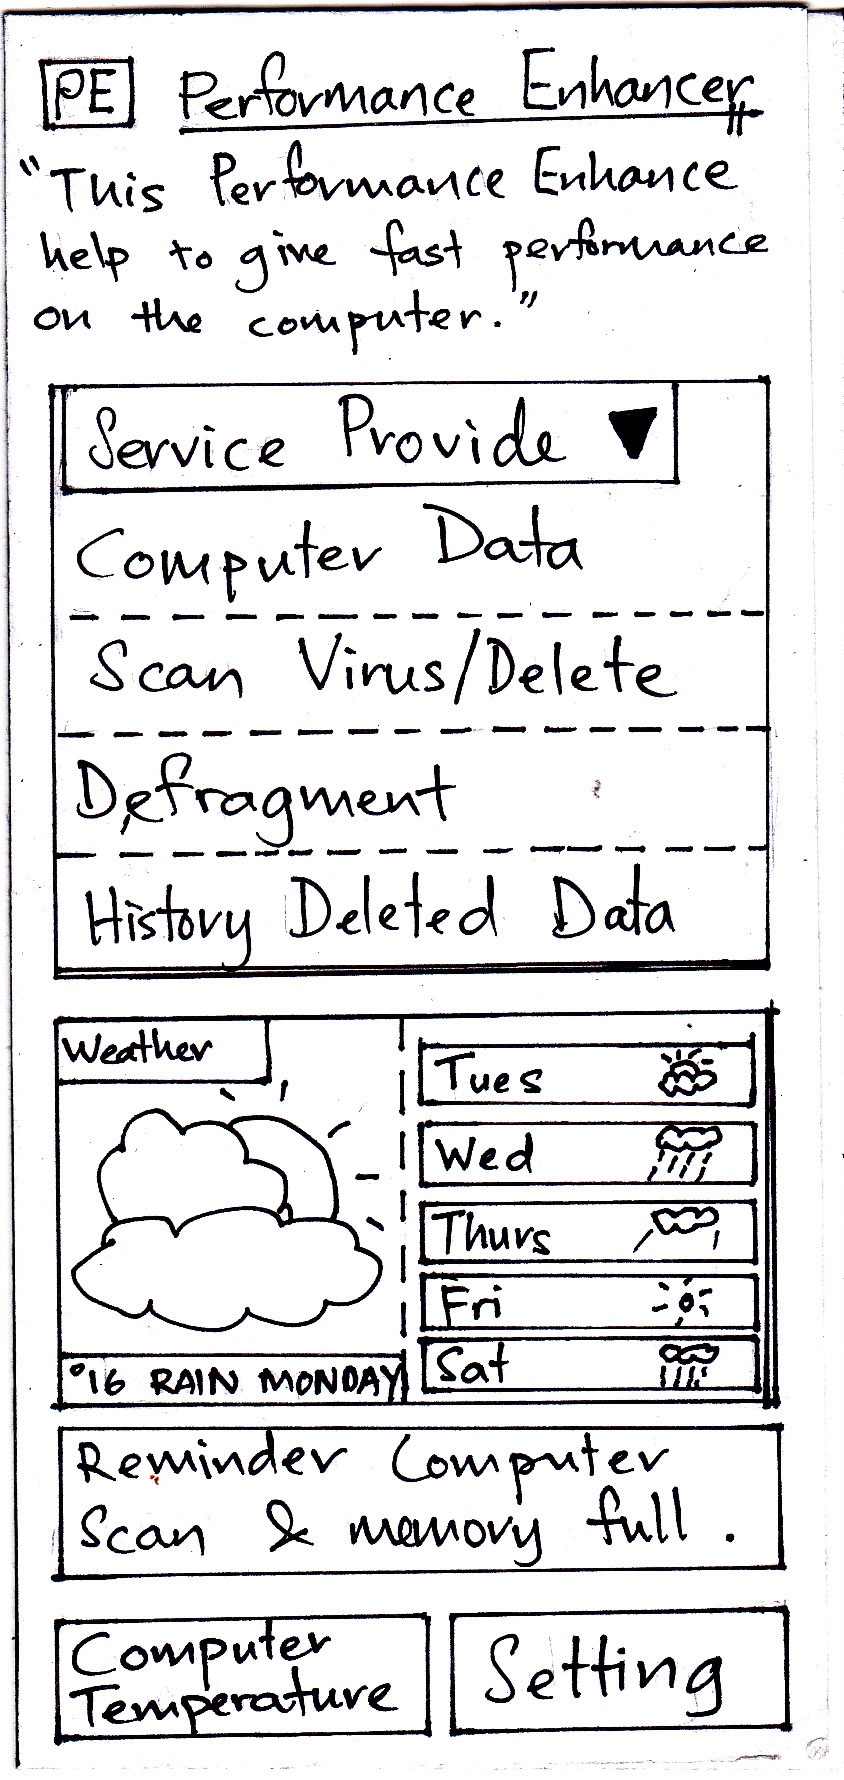 PE Performance Enhancer
"This Performance Enhance
help to give fast performance
on the computer."
Service Provide
Computer Data
Scan Virus/Delete
Defragment
History Deleted Data
Weather
°16 RAIN MONDAY
Tues
Wed
Thurs
Fri
Sat
Reminder Computer
Scan & memory full.
Computer
Temperature
Setting